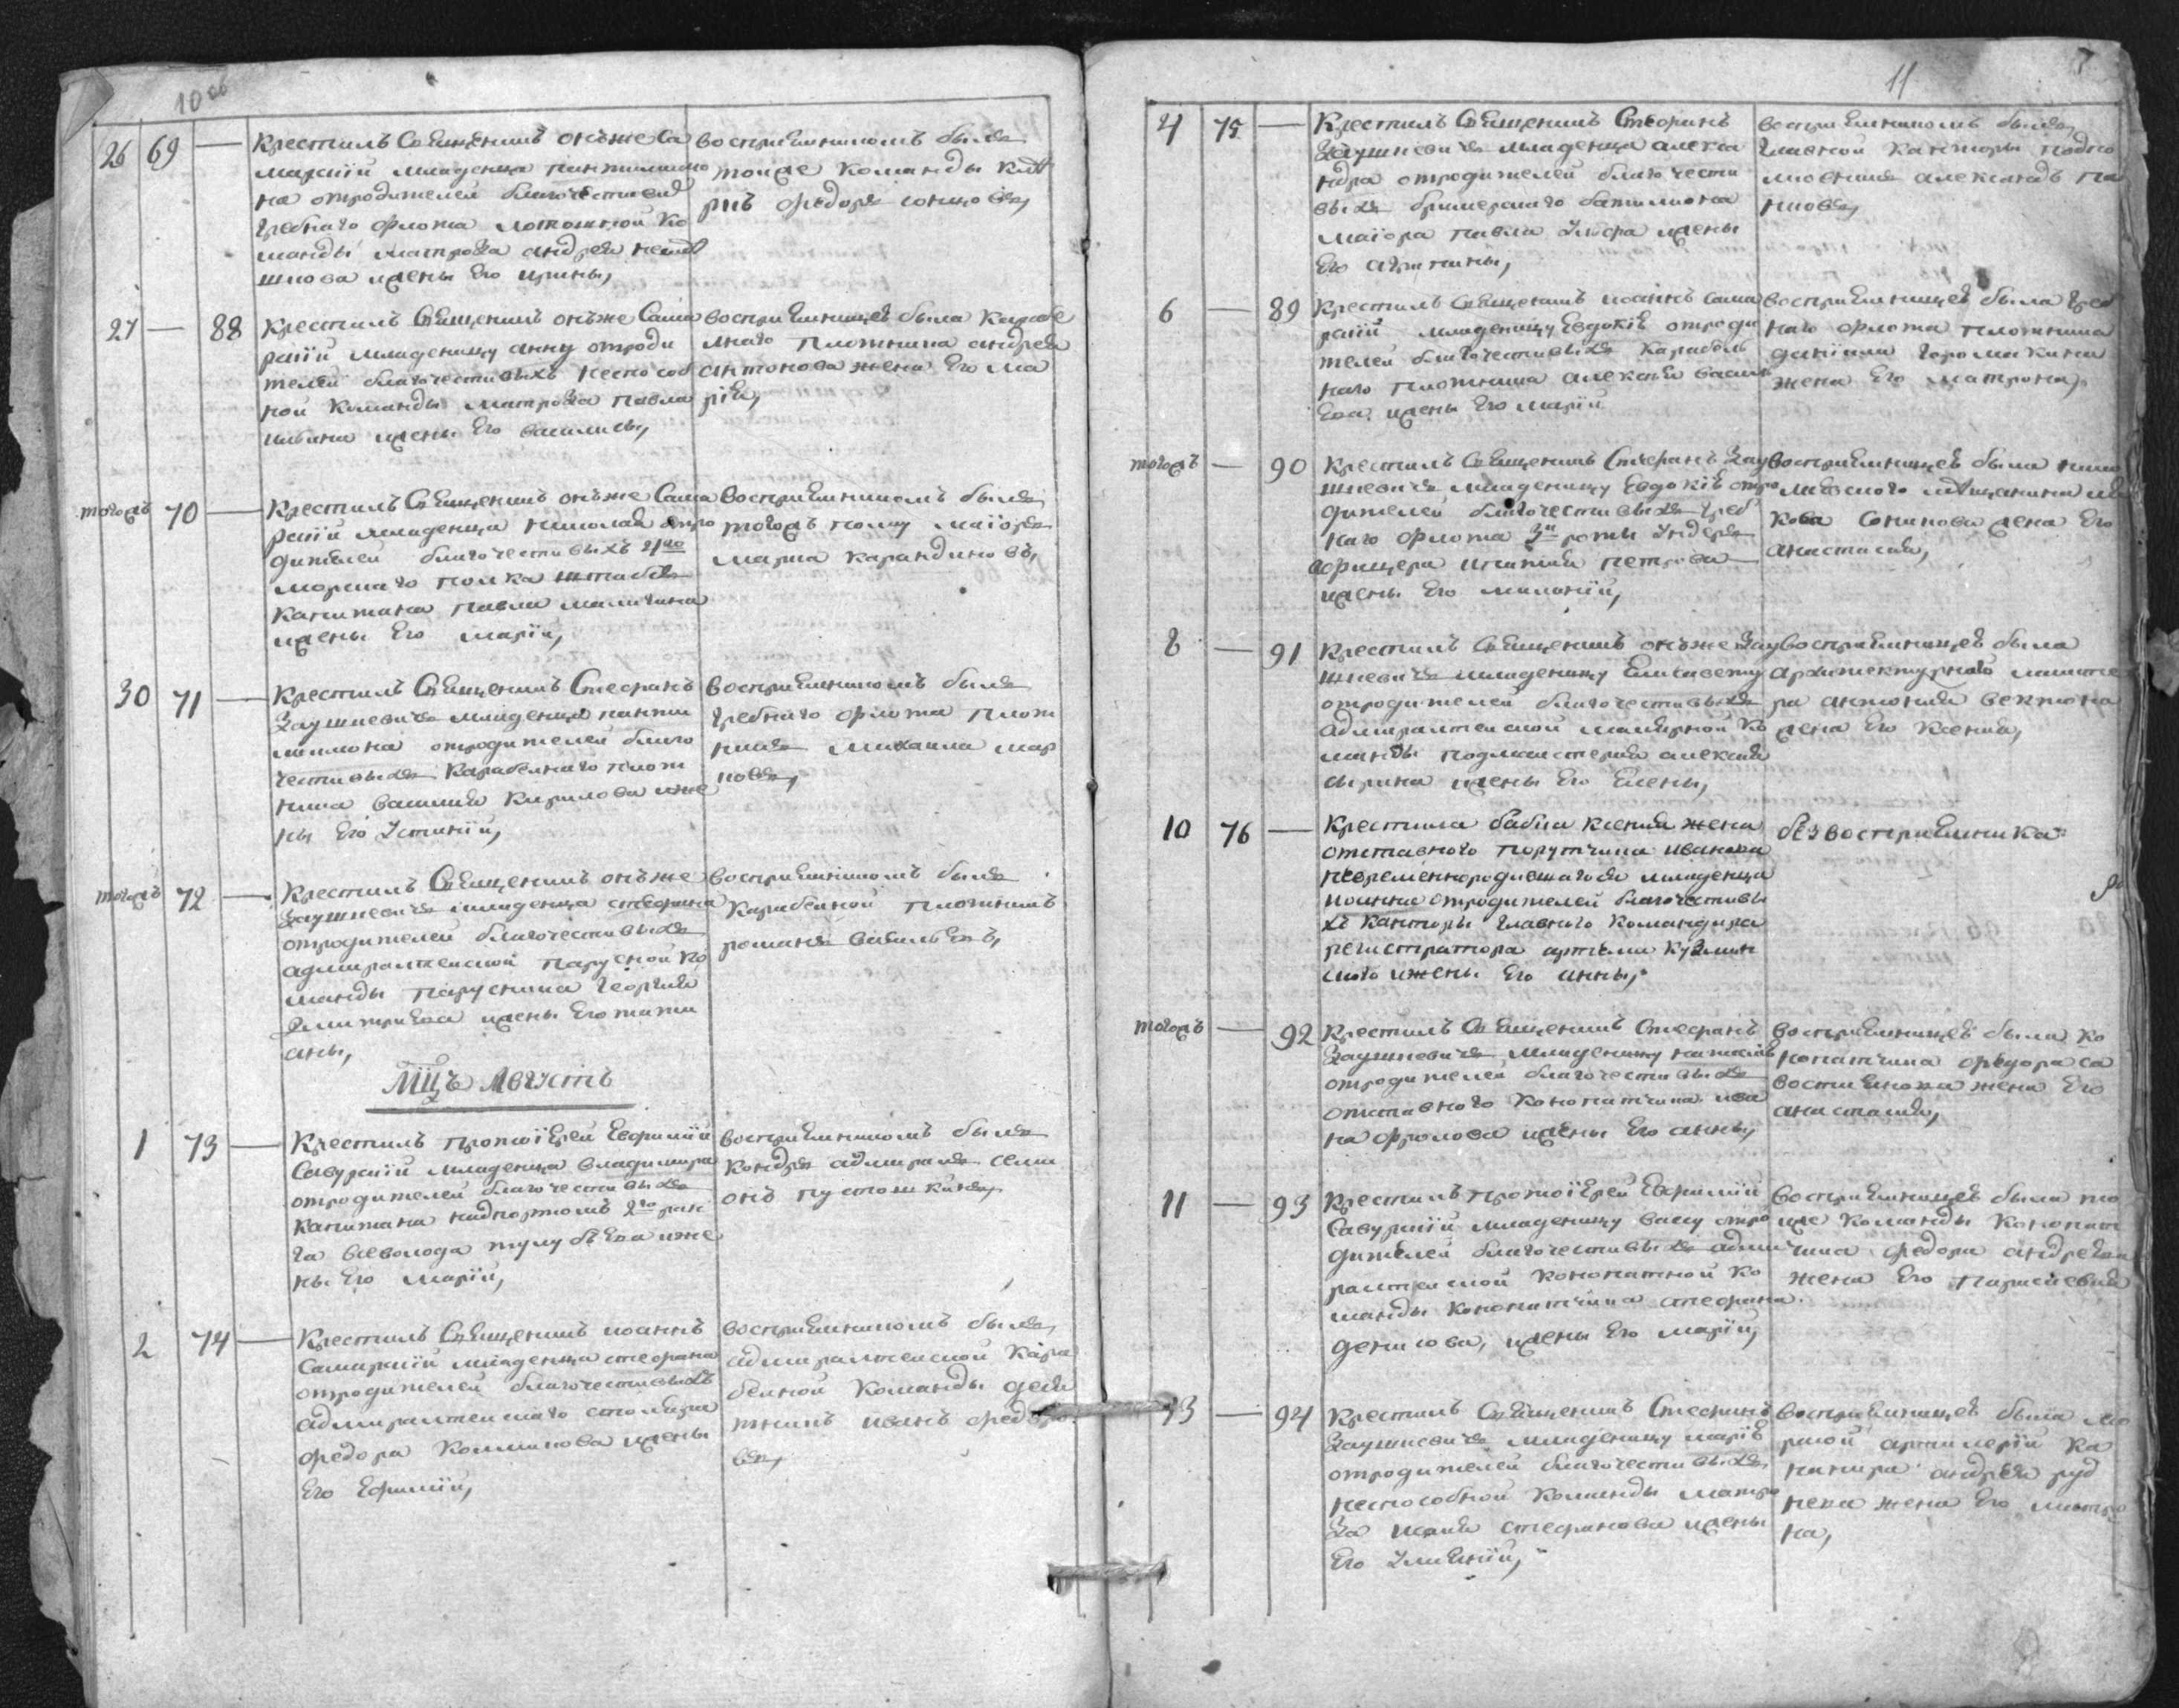 10 об
26 69 — Крестилъ Священникъ онъ же Са
марскiй младенца пантилимо
на отродителей благочестивих
гребнаго флота ластовой ко
манды матроза андрея
жены Его ирины,
воспрiемникомъ былъ
тоиже команды
федоръ
27 — 88 Крестилъ Священникъ онъ же Сама
рскiй младеницу анну отроди
телей благочестивыхъ неспособ
ной команды матроза павла
жены Его василисы,
воспрiемницею была карабе
лнаго плотника андрея
антонова жена Его ма
рiя,
тогожъ 70 — Крестилъ Священникъ онъ же Сама
рскiй младенца николая отро
дителей благочестивыхъ 2го
морскаго полка штабсъ
капитана павла маличина
жены Его марiи,
воспрiемникомъ былъ
тогожъ полку маiоръ
марка карандиновъ,
30 71 — Крестилъ Священникъ Стефанъ
Заушкевичъ младенца панти
лимона отродителей благо
честивыхъ карабелнаго плот
ника василия Кирилова иже
ны Его Устинiи,
воспрiемникомъ былъ
гребнаго флота плот
никъ михаила мар
ковъ,
тогожъ 72 — Крестилъ Священникъ онъ же
Заушкевичъ младенца стефана
отродителей благочестивыхъ
адмиралтейской парусной ко
манды парусника георгия
Дмитриева жены Его тати
аны,
воспрiемникомъ былъ
Карабелной плотникъ
романъ васильевъ,
Мцъ Августъ
1 73 — Крестилъ протоiерей Евфимiй
Савурскiй младенца владимира
отродителей благочестивыхъ
капитана надпортомъ 2го ран
га всеволода тулубѣева иже
ны Его марiи,
воспрiемникомъ былъ
контръ адмиралъ семи
онъ пустошкинъ,
2 74 — Крестилъ Священникъ иоаннъ
Самарскiй младенца стефана
отродителей благочестивыхъ
адмиралтейскаго столяра
федора Колмакова жены
Его Ефимiи,
воспрiемникомъ былъ
адмиралтейской кара
белной команды деся
тникъ иванъ федоро
въ,
11
4 75 — Крестилъ Священникъ Стефанъ
Заушкевичъ младенца алекса
ндра отродителей благочести
выхъ бригерскаго баталиона
маiора павла жены
Его агрипины,
воспрiемникомъ былъ
главной канторы подпо
александъ па
новъ,
6 — 89 Крестилъ Священникъ иоаннъ сама
рскiй младеницу Евдокiю отроди
телей благочестивыхъ карабель
наго плотника алексѣя василь
ева жены Его марiи
воспрiемницею была греб
наго флота плотника
данiила горомакина
жена Его матрона,
тогожъ — 90 Крестилъ Священникъ Стефанъ Зау
шкевичъ младеницу Евдокiю отро
дителей благочестивыхъ греб
наго флота 3й роты Ундеръ
офицера игнатия петрова
жены Его миланiи,
воспрiемницею была нико
лаевскаго мѣщанина
кова жена Его
анастасия,
8 — 91 Крестилъ Священникъ онъ же Зау
шкевичъ младеницу Елисавету
отродителей благочестивыхъ
адмиралтейской малярной ко
манды подмастерия алексия
сырина жены Его Елены,
воспрiемницею была
архитектурнаго
антония вектона
жена Его Ксения,
10 76 — Крестила бабка ксения жена
отставного порутчика иванова
невременнородившагося младенца
иоанна отродителей благочестивы
хъ канторы главнаго командира
регистратора артема кузмин
скаго ижены Его анны,
безвоспрiемника
тогожъ — 92 Крестилъ Священникъ Стефанъ
Заушкевичъ младеницу наталiю
отродителей благочестивыхъ
отставного конопатчика ива
на фролова жены Его анны,
воспрiемницею была ко
нопатчика федора са
востианова жена Его
анастасия,
11 — 93 Крестилъ протоiерей Евфимiй
Савурскiй младеницу васу отро
дителей благочестивыхъ адми
ралтейской конопатной ко
манды конопатчика стефана
денисова, жены Его марiи,
воспрiемницею была то
йже команды конопат
чика федора андреева
жена Его параскевия
13 — 94 Крестилъ Священникъ Стефанъ
Заушкевичъ младеницу марiю
отродителей благочестивыхъ
неспособной команды матро
за стефанова жены
Его Улиянiи,
воспрiемницею была мо
рской артилерiи ка
нанира андрѣя руд
нева жена Его матро
на,